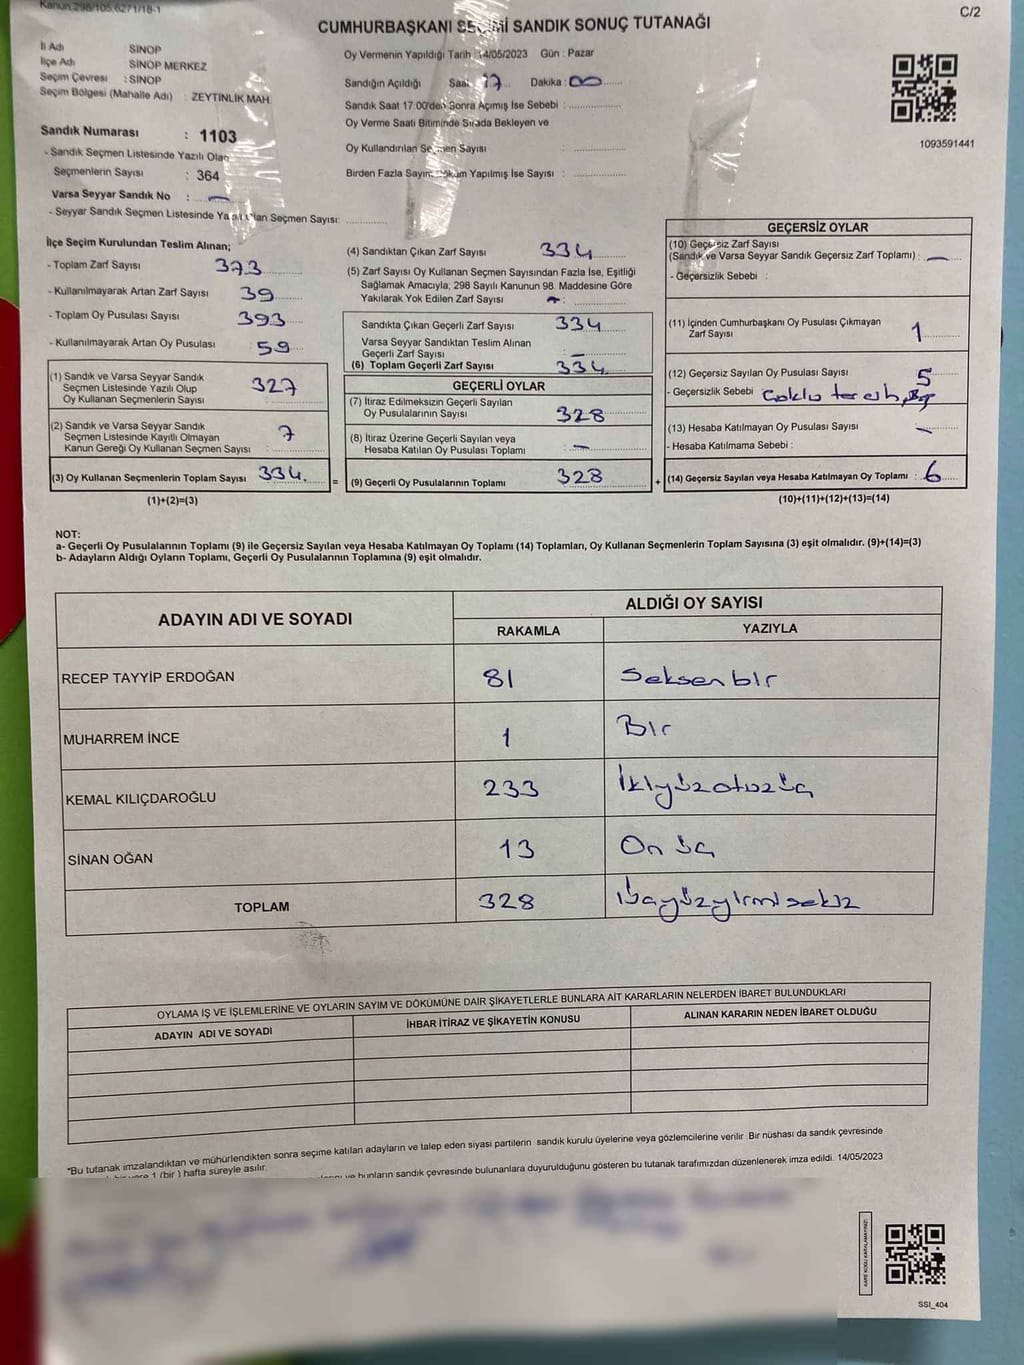 Kanun:298/105,6271/18-1
C/2
CUMHURBAŞKANI SEÇİMİ SANDIK SONUÇ TUTANAĞI
İl Adı : SİNOP
İlçe Adı : SİNOP MERKEZ
Seçim Çevresi : SİNOP
Seçim Bölgesi (Mahalle Adı) : ZEYTİNLİK MAH.
Oy Vermenin Yapıldığı Tarih : 14/05/2023 Gün : Pazar
Sandığın Açıldığı Saat 17 Dakika : 00
Sandık Saat 17:00'den Sonra Açımış İse Sebebi :
Oy Verme Saati Bitiminde Sırada Bekleyen ve
Oy Kullandırılan Seçmen Sayısı :
Birden Fazla Sayım Döküm Yapılmış İse Sayısı :
1093591441
Sandık Numarası : 1103
- Sandık Seçmen Listesinde Yazılı Olan
Seçmenlerin Sayısı : 364
Varsa Seyyar Sandık No : —
- Seyyar Sandık Seçmen Listesinde Yazılı Olan Seçmen Sayısı:
İlçe Seçim Kurulundan Teslim Alınan;
- Toplam Zarf Sayısı 373
- Kullanılmayarak Artan Zarf Sayısı 39
- Toplam Oy Pusulası Sayısı 393
- Kullanılmayarak Artan Oy Pusulası 59
(1) Sandık ve Varsa Seyyar Sandık
Seçmen Listesinde Yazılı Olup
Oy Kullanan Seçmenlerin Sayısı : 327
(2) Sandık ve Varsa Seyyar Sandık
Seçmen Listesinde Kayıtlı Olmayan
Kanun Gereği Oy Kullanan Seçmen Sayısı : 7
(3) Oy Kullanan Seçmenlerin Toplam Sayısı 334
(1)+(2)=(3)
=
(4) Sandıktan Çıkan Zarf Sayısı 334
(5) Zarf Sayısı Oy Kullanan Seçmen Sayısından Fazla İse, Eşitliği
Sağlamak Amacıyla; 298 Sayılı Kanunun 98. Maddesine Göre
Yakılarak Yok Edilen Zarf Sayısı :
Sandıkta Çıkan Geçerli Zarf Sayısı 334
Varsa Seyyar Sandıktan Teslim Alınan
Geçerli Zarf Sayısı : —
(6) Toplam Geçerli Zarf Sayısı 334
GEÇERLİ OYLAR
(7) İtiraz Edilmeksizin Geçerli Sayılan
Oy Pusulalarının Sayısı 328
(8) İtiraz Üzerine Geçerli Sayılan veya
Hesaba Katılan Oy Pusulası Toplamı : —
(9) Geçerli Oy Pusulalarının Toplamı 328
+
GEÇERSİZ OYLAR
(10) Geçersiz Zarf Sayısı
(Sandık ve Varsa Seyyar Sandık Geçersiz Zarf Toplamı) : —
- Geçersizlik Sebebi :
(11) İçinden Cumhurbaşkanı Oy Pusulası Çıkmayan
Zarf Sayısı 1
(12) Geçersiz Sayılan Oy Pusulası Sayısı 5
- Geçersizlik Sebebi Çoklu
(13) Hesaba Katılmayan Oy Pusulası Sayısı —
- Hesaba Katılmama Sebebi :
(14) Geçersiz Sayılan veya Hesaba Katılmayan Oy Toplamı : 6
(10)+(11)+(12)+(13)=(14)
NOT:
a- Geçerli Oy Pusulalarının Toplamı (9) ile Geçersiz Sayılan veya Hesaba Katılmayan Oy Toplamı (14) Toplamları, Oy Kullanan Seçmenlerin Toplam Sayısına (3) eşit olmalıdır. (9)+(14)=(3)
b- Adayların Aldığı Oyların Toplamı, Geçerli Oy Pusulalarının Toplamına (9) eşit olmalıdır.
ADAYIN ADI VE SOYADI
ALDIĞI OY SAYISI
RAKAMLA YAZIYLA
RECEP TAYYİP ERDOĞAN 81 Seksenbir
MUHARREM İNCE 1 Bir
KEMAL KILIÇDAROĞLU 233 İkiyüzotuzüç
SİNAN OĞAN 13 On üç
TOPLAM 328 üçyüzyirmisekiz
OYLAMA İŞ VE İŞLEMLERİNE VE OYLARIN SAYIM VE DÖKÜMÜNE DAİR ŞİKAYETLERLE BUNLARA AİT KARARLARIN NELERDEN İBARET BULUNDUKLARI
ADAYIN ADI VE SOYADI İHBAR İTİRAZ VE ŞİKAYETİN KONUSU ALINAN KARARIN NEDEN İBARET OLDUĞU
*Bu tutanak imzalandıktan ve mühürlendikten sonra seçime katılan adayların ve talep eden siyasi partilerin sandık kurulu üyelerine veya gözlemcilerine verilir. Bir nüshası da sandık çevresinde
bir yere 1 (bir) hafta süreyle asılır.
ve bunların sandık çevresinde bulunanlara duyurulduğunu gösteren bu tutanak tarafımızdan düzenlenerek imza edildi. 14/05/2023
KARE KODU KARALAMAYINIZ!
SSI_404